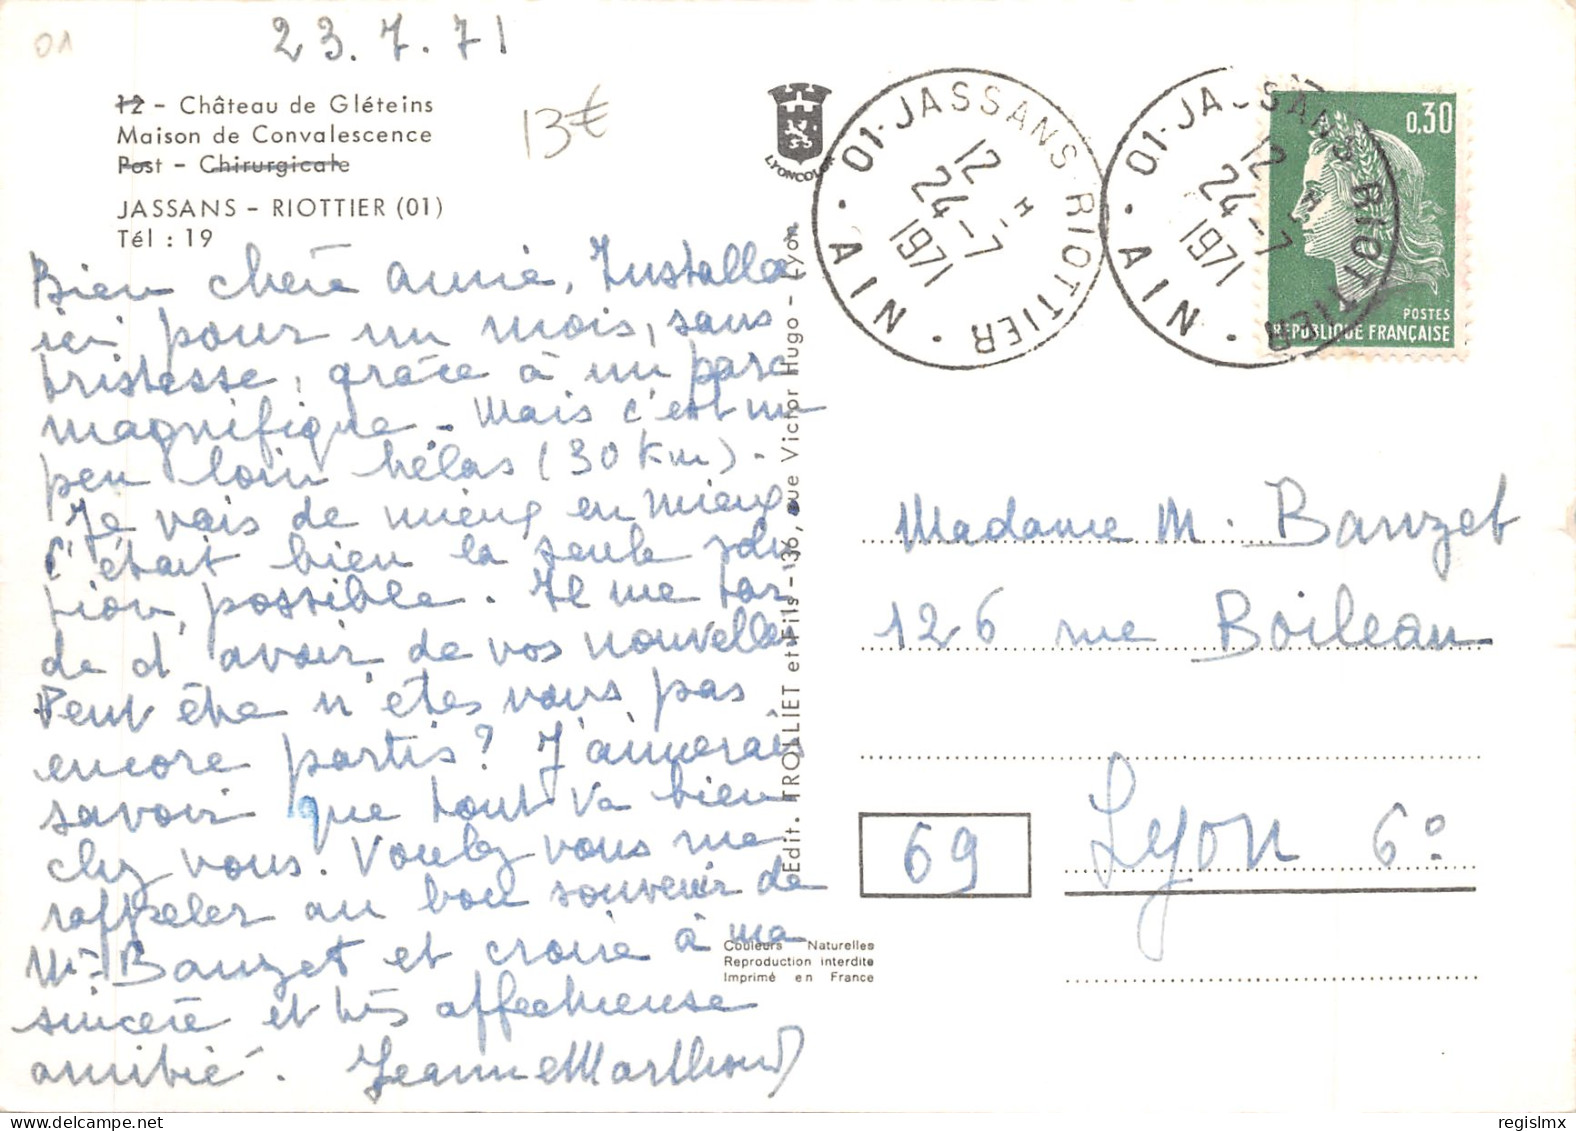 01
23.7.71
12 - Château de Gléteins
Maison de Convalescence
Post - Chirurgicale
JASSANS - RIOTTIER (01)
Tél : 19
13€
Bien chère annie, Installée
ici pour un mois, sans
tristesse, grâce à un parc
magnifique - Mais c'est un
peu loin hélas (30 km) -
Je vais de mieux en mieux
C'était bien la seule solu
tion, possible. Il me tar
de d'avoir de vos nouvelles
Peut être n'êtes vous pas
encore partis ? J'aimerais
savoir que tout va bien
chez vous. Voulez vous me
rappeler au bon souvenir de
Mr Bauzet et croire à ma
sincère et très affectueuse
amitié. Jeanne Marthoud
LYONCOLOR
Edit. TROLLIET et Fils - 136, rue Victor Hugo - Lyon
Couleurs Naturelles
Reproduction interdite
Imprimé en France
01-JASSANS RIOTTIER
12 H
24-7
1971
AIN
01-JASSANS RIOTTIER
12 H
24-7
1971
AIN
0,30
POSTES
RÉPUBLIQUE FRANÇAISE
Madame M. Bauzet
126 rue Boileau
69
Lyon 6°
regislmx